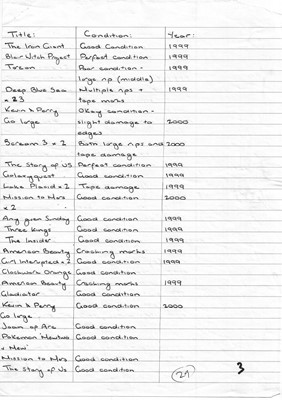 Title: Condition: Year:
The Iron Giant Good Condition 1999
Blair Witch Project Perfect condition 1999
Poor condition - 1999
large rip (middle)
Deep Blue Sea Multiple rips + 1999
x 23 tape marks
Kevin & Perry Okay condition -
Go large slight damage to 2000
edges
Scream 3 x 2 Both large rips and 2000
tape damage
The Story of US Perfect condition 1999
Galaxyquest Good condition 1999
Lake Placid x 2 Tape damage 1999
Mission to Mars Good condition 2000
x 2
Any given Sunday Good condition 1999
Three Kings Good condition 1999
The Insider Good condition 1999
American Beauty Creasing marks 1999
Girl Interupted x 2 Good condition 1999
Clockwork Orange Good condition
American Beauty Creasing marks 1999
Gladiator Good condition
Kevin & Perry Good condition 2000
Go large
Joan of Arc Good condition
Pokemon Mewtwo Good condition
v Mew
Mission to Mars Good condition
The Story of Us Good condition
3